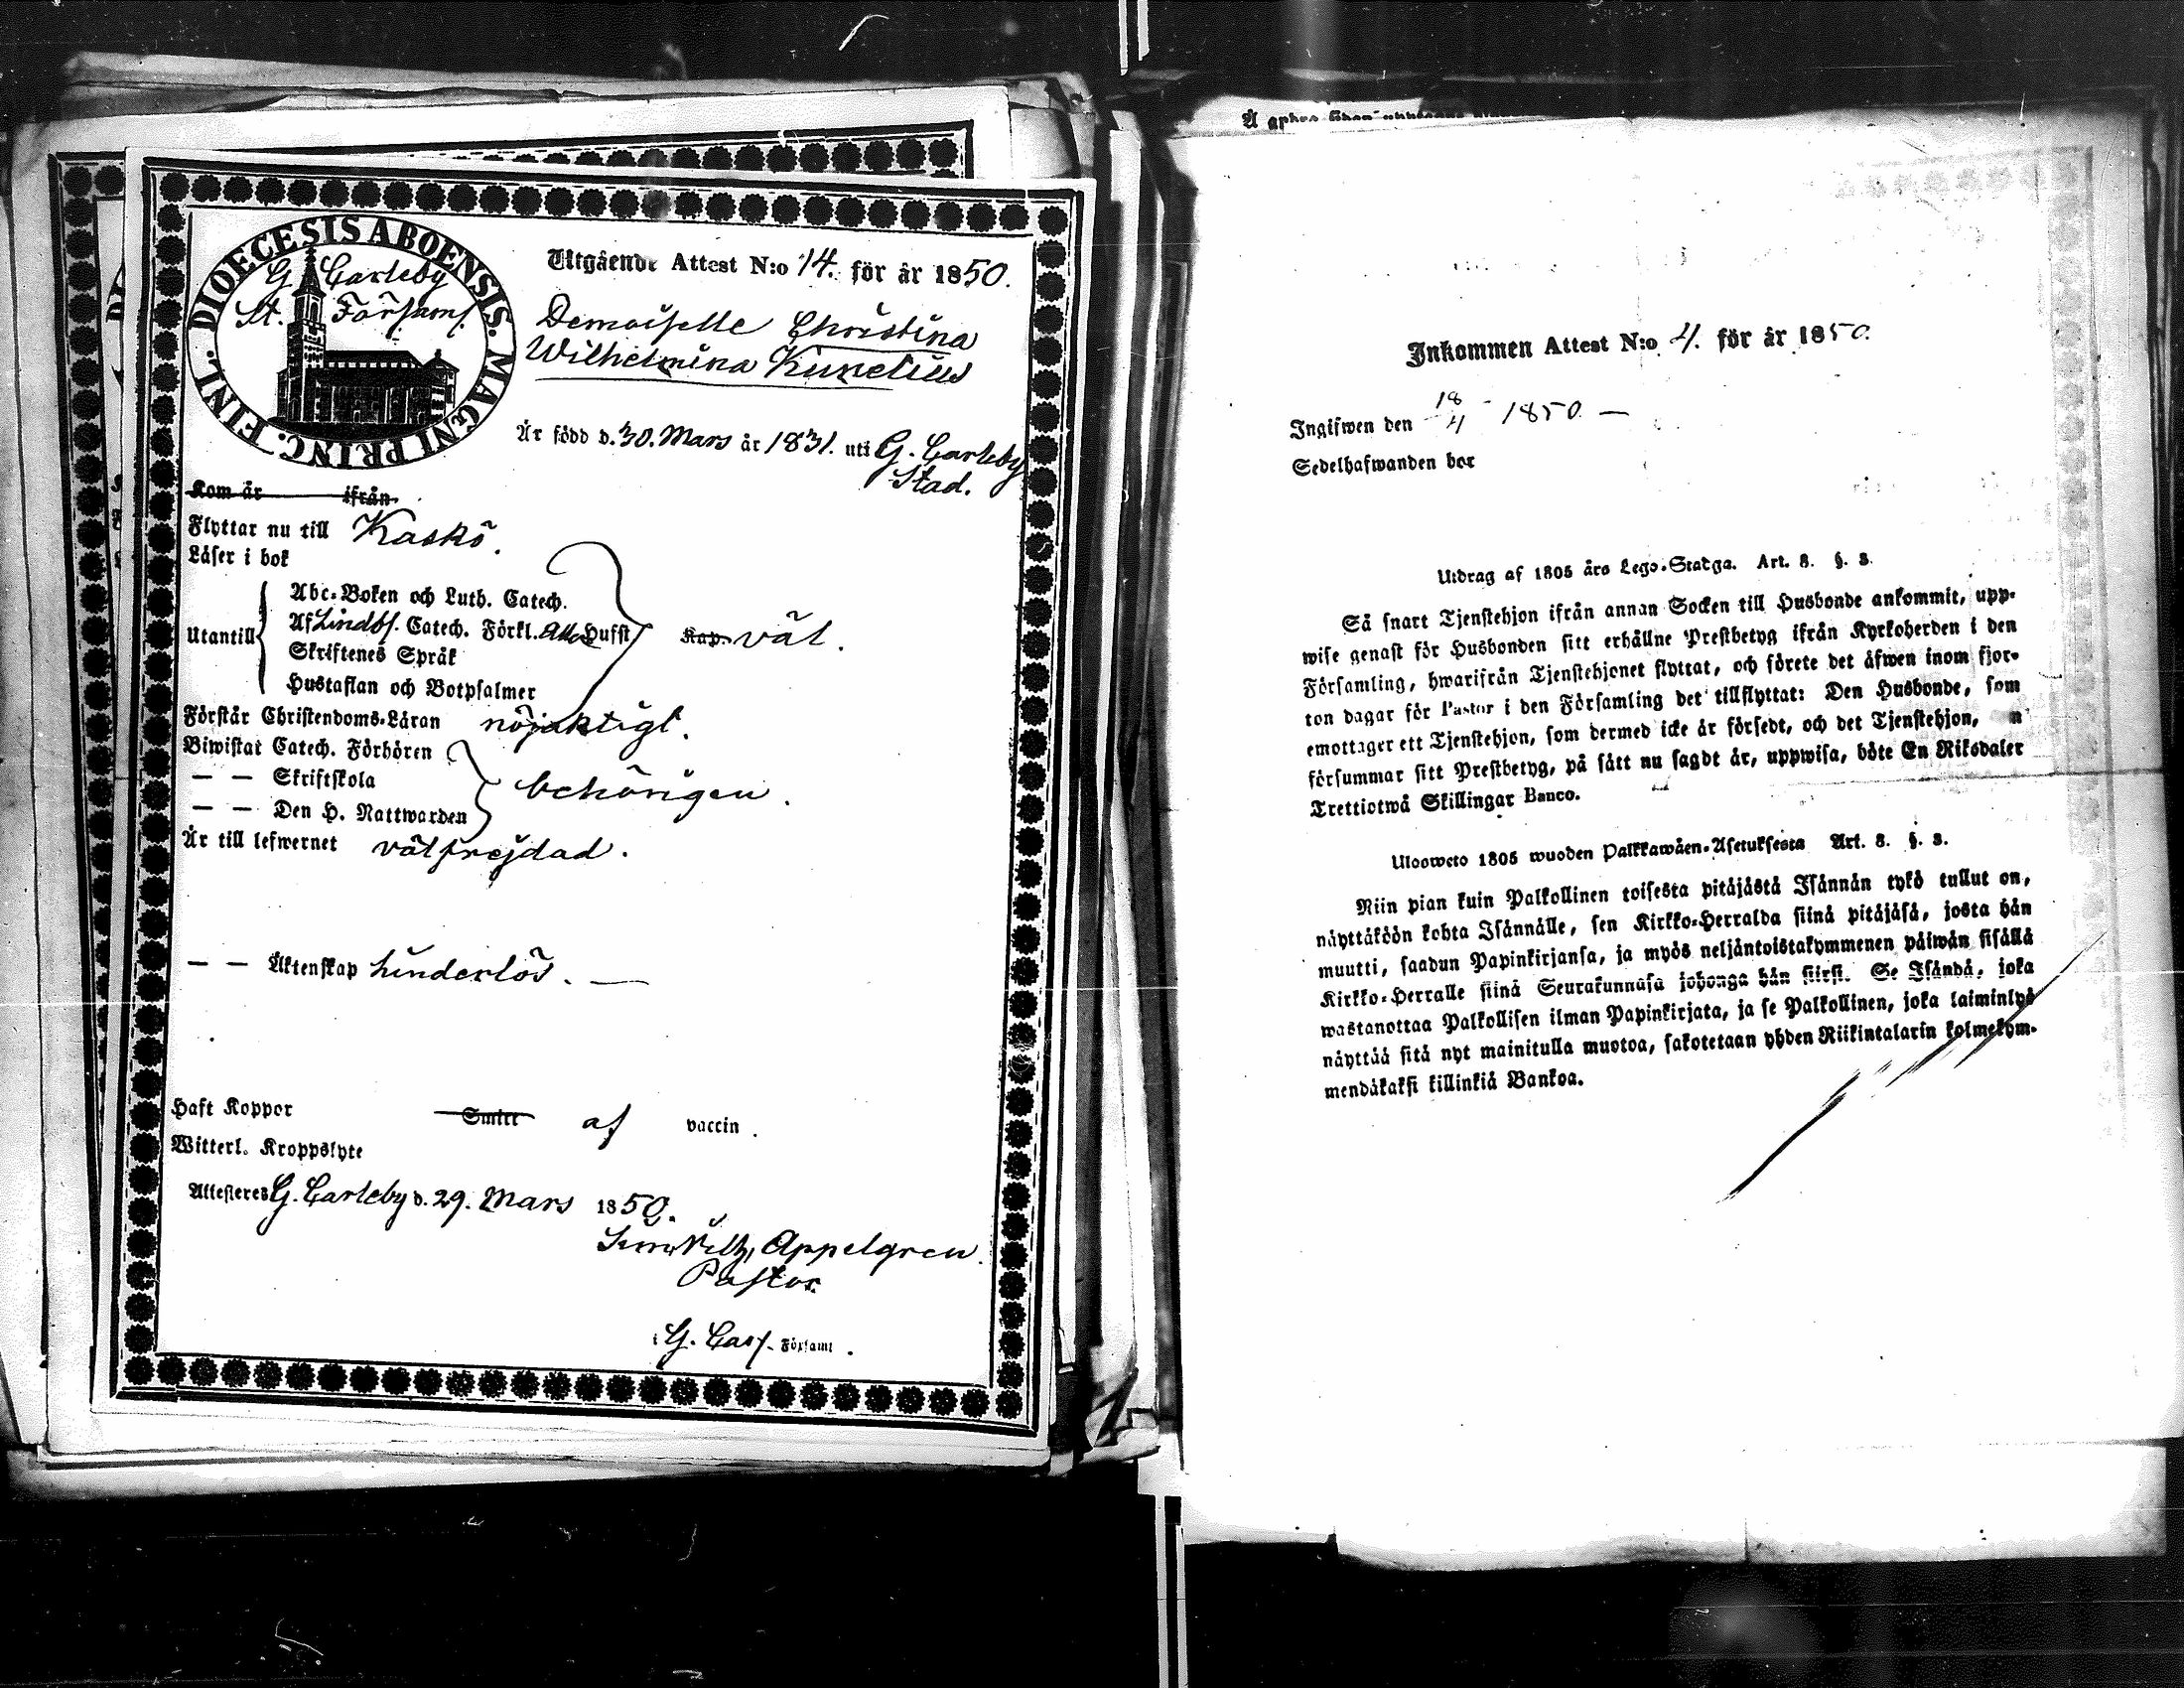 DIOECESIS ABOENSIS. MAGNI PRINC. FINL.
G. Carleby
St. Församl.
Utgående Attest N:o 14. för år 1850.
Demoiselle Christina
Wilhelmina Kunelius
Är född d. 30. Mars år 1831. uti G. Carleby
Stad.
Kom år ifrån
Flyttar nu till Kaskö.
Läser i bok
Abc-Boken och Luth. Catech.
Utantill Af Lindbl. Catech. Förkl. Alla Hufst Kap. väl.
Skriftenes Språk
Hustaflan och Botpsalmer
Förstår Christendoms-Läran nöjaktigt.
Biwistat Catech. Förhören
— — Skriftskola behörigen.
— — Den H. Nattwarden
Är till lefwernet välfrejdad.
— — Äktenskap hinderlös. —
Haft Koppor Smitt af vaccin.
Witterl. Kroppslyte
Attesteras G. Carleby d. 29. Mars 1850.
Appelgren
Pastor
i G. Carl. Församl.
Inkommen Attest N:o 4. för år 1850.
Ingifwen den 18/4 1850 —
Sedelhafwanden bor
Utdrag af 1805 års Lego-Stadga. Art. 8. §. 3.
Så snart Tjenstehjon ifrån annan Socken till Husbonde ankommit, upp-
wise genast för Husbonden sitt erhållne Prestbetyg ifrån Kyrkoherden i den
Församling, hwarifrån Tjenstehjonet flyttat, och förete det äfwen inom fjor-
ton dagar för Pastor i den Församling det tillflyttat: Den Husbonde, som
emottager ett Tjenstehjon, som dermed icke är försedt, och det Tjenstehjon,
försummar sitt Prestbetyg, på sätt nu sagdt är, uppwisa, böte En Riksdaler
Trettiotwå Skillingar Banco.
Uloosweto 1805 wuoden Palkkawäen-Asetuksesta Art. 8. §. 3.
Niin pian kuin Palkollinen toisesta pitäjästä Isännän tykö tullut on,
näyttäköön kohta Isännälle, sen Kirkko-Herralda siinä pitäjäsä, josta hän
muutti, saadun Papinkirjansa, ja myös neljäntoistakymmenen päiwän sisällä
Kirkko-Herralle siinä Seurakunnasa johonga hän siirsi. Se Isändä, joka
wastanottaa Palkollisen ilman Papinkirjata, ja se Palkollinen, joka laiminlyö
näyttää sitä nyt mainitulla muotoa, sakotetaan yhden Riikintalarin kolmekym-
mendäkaksi killinkiä Bankoa.